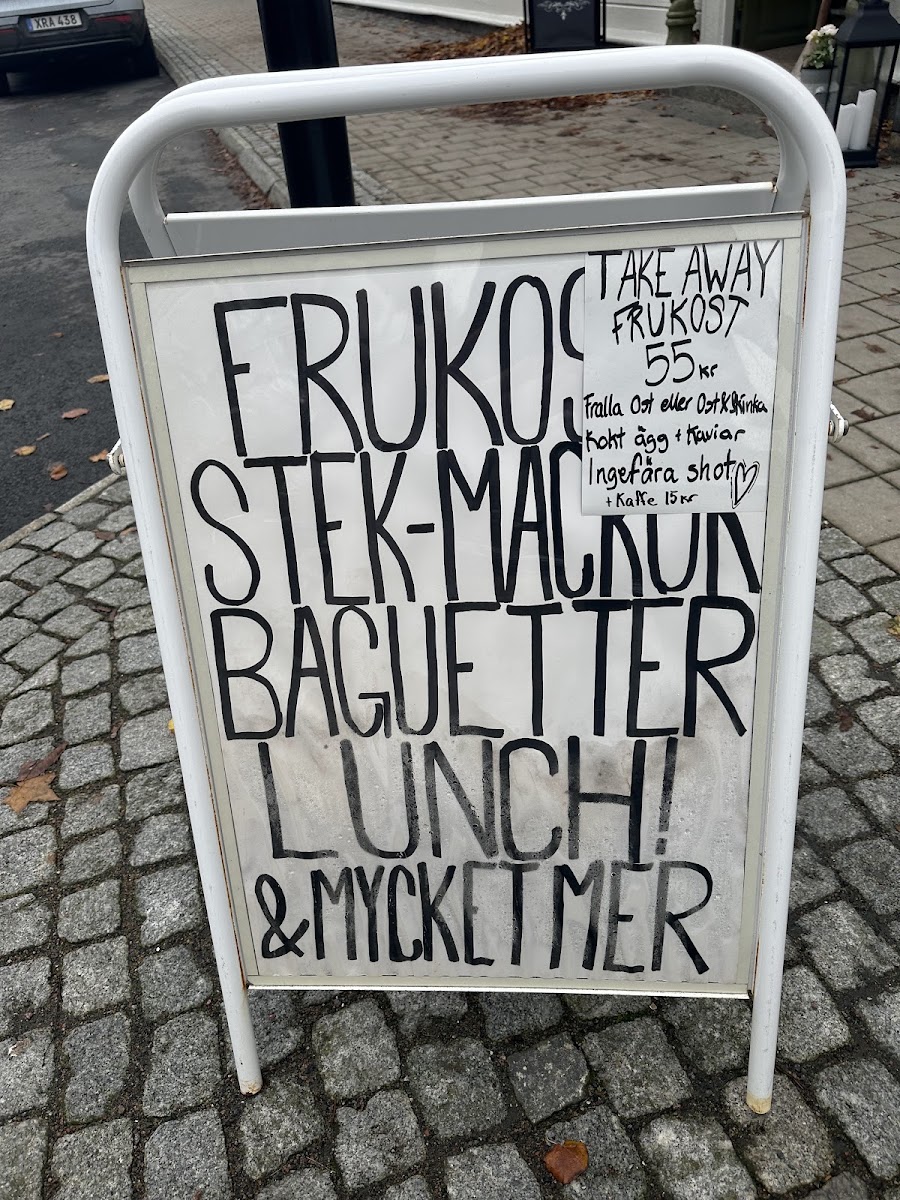 XRA 438
FRUKOS
STEK-MACKOR
BAGUETTER
LUNCH!
& MYCKET MER
TAKE AWAY
FRUKOST
55 kr
Fralla Ost eller Ost & Skinka
Kokt ägg + Kaviar
Ingefära shot
+ Kaffe 15 kr